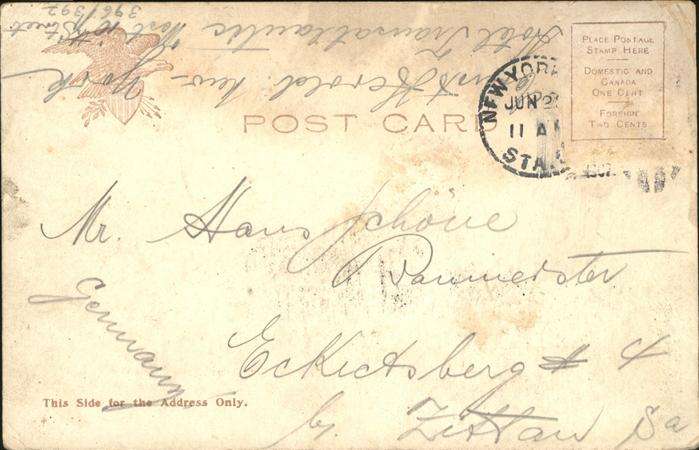 396/397
West 10th Street
Hotel Transatlantic
Ernst Herold New-York
POST CARD
PLACE POSTAGE
STAMP HERE
DOMESTIC AND
CANADA
ONE CENT
FOREIGN
TWO CENTS
NEW YORK
JUN 2
11 A
STA.
1907
Mr. Hans Schöne
Baumeister
Eckartsberg # 4
by Zittau Sa
Germany
This Side for the Address Only.